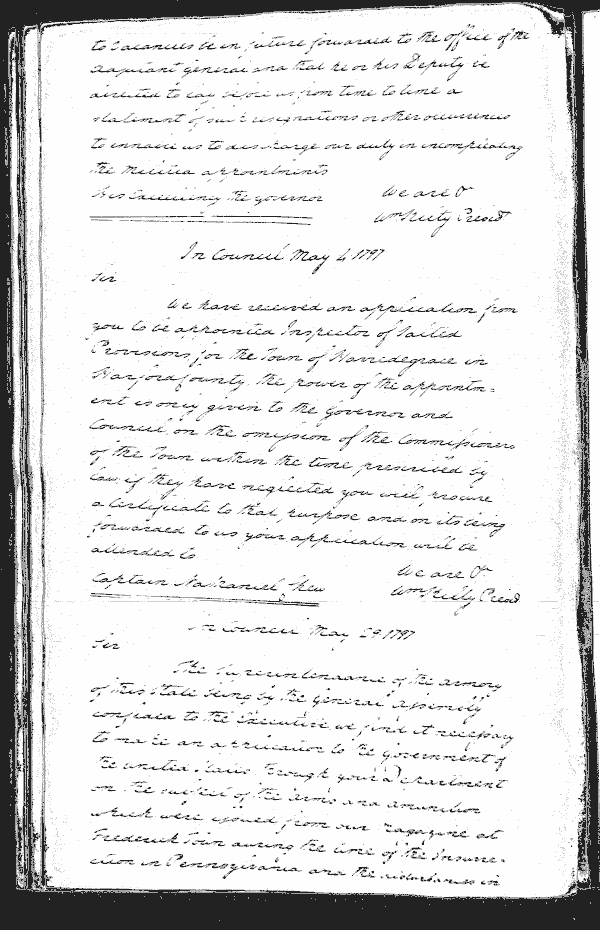 to vacancies be in future forwarded to the office of the
adjutant general and that he or his Deputy be
directed to lay before us from time to time a
statement of such resignations or other occurrences
to enable us to discharge our duty in
the militia appointments
His Excellency the governor We are &
Wm Kilty Presdt
In Council May 4 1797
Sir
We have received an application from
you to be appointed Inspector of Salted
Provisions for the Town of Havredegrace in
Harford County. the power of the appointm=
ent is only given to the Governor and
Council on the omission of the Commissioners
of the Town within the time prescribed by
law, if they have neglected you will procure
a Certificate to that purpose and on its being
forwarded to us your application will be
attended to
We are &
Captain Nathaniel Wm Kilty Presdt
In Council May 29 1797
Sir
The Superintendance of the armory
of this State being by the general assembly
confided to the Executive we find it necessary
to make an application to the government of
the united States through your department
on the subject of the arms and amunition
which were issued from our magazine at
Frederick Town during the time of the Insurre=
ction in Pennsylvania and the disturbances in